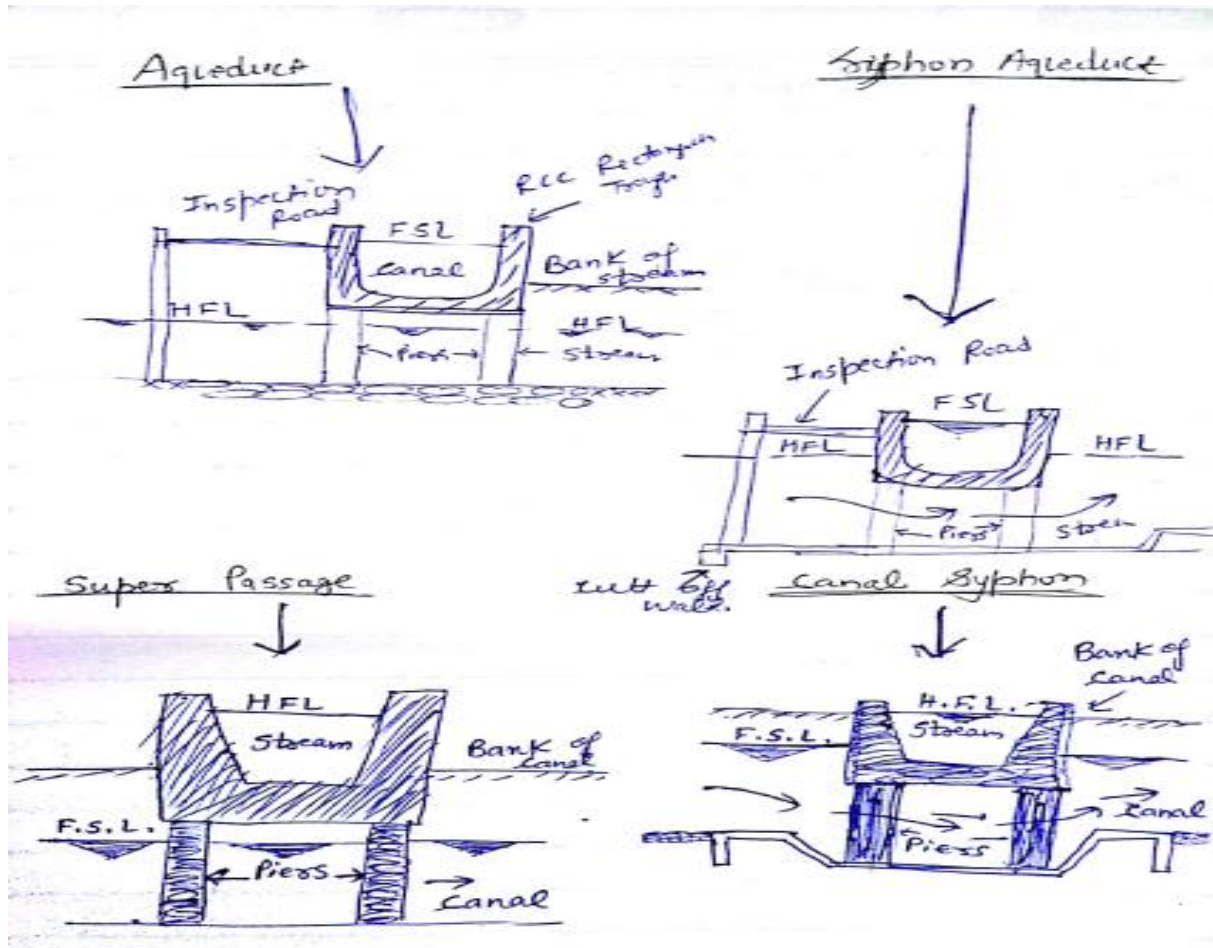 Aqueduct
Inspection
Road
FSL
Canal
RCC Rectangular
Trough
Bank of
stream
HFL
HFL
Piers
Stream
Syphon Aqueduct
Inspection Road
FSL
HFL
HFL
Piers
Cutt Off
wall.
Super Passage
HFL
Stream
Bank of
Canal
F.S.L.
Piers
Canal
Canal Syphon
Bank of
Canal
H.F.L.
Stream
F.S.L.
Canal
Piers